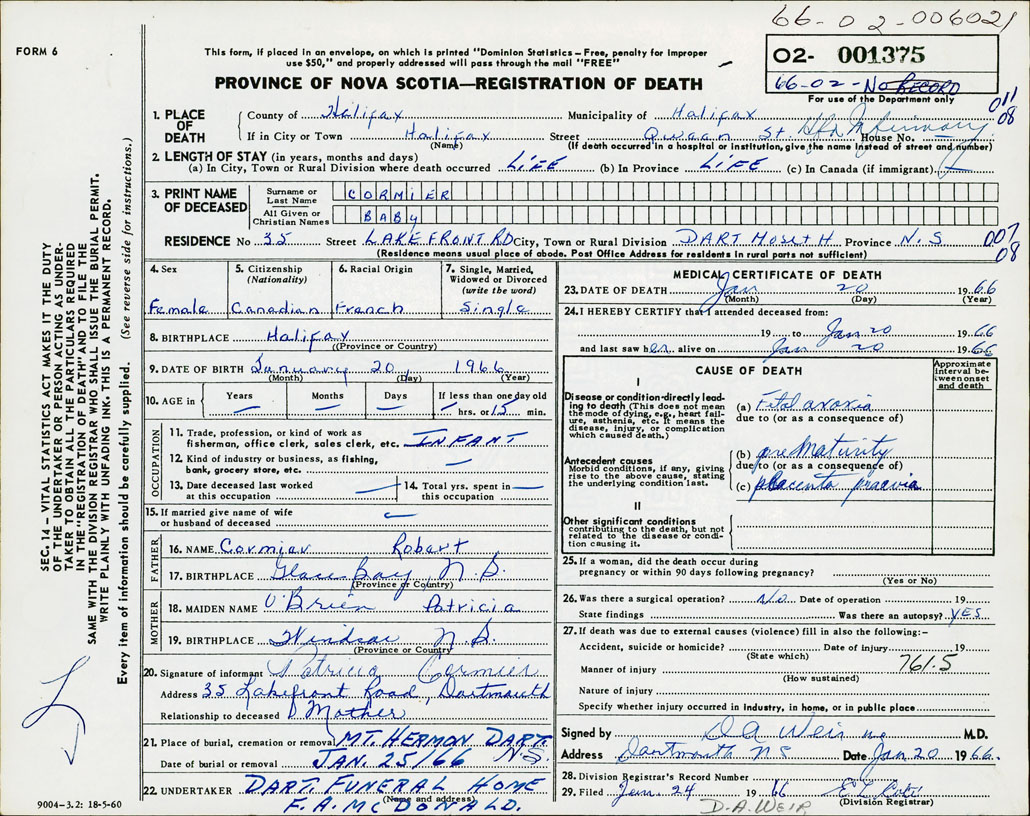 66-02-006021
FORM 6
This form, if placed in an envelope, on which is printed "Dominion Statistics – Free, penalty for improper
use $50," and properly addressed will pass through the mail "FREE"
O2- 001375
PROVINCE OF NOVA SCOTIA—REGISTRATION OF DEATH
66-02-No RECORD
For use of the Department only
011
08
1. PLACE OF DEATH
County of Halifax Municipality of Halifax
If in City or Town Halifax Street Queen St. Hfx Infirmary House No.
(Name) (If death occurred in a hospital or institution, give the name instead of street and number)
2. LENGTH OF STAY (in years, months and days)
(a) In City, Town or Rural Division where death occurred LIFE (b) In Province LIFE (c) In Canada (if immigrant)
3. PRINT NAME OF DECEASED
Surname or Last Name CORMIER
All Given or Christian Names BABY
RESIDENCE No 35 Street LAKEFRONT RD City, Town or Rural Division DARTMOUTH Province N.S
007
08
(Residence means usual place of abode. Post Office Address for residents in rural parts not sufficient)
4. Sex Female
5. Citizenship (Nationality) Canadian
6. Racial Origin French
7. Single, Married, Widowed or Divorced (write the word) Single
8. BIRTHPLACE Halifax
(Province or Country)
9. DATE OF BIRTH January 20, 1966
(Month) (Day) (Year)
10. AGE in Years — Months — Days — If less than one day old — hrs. or 15 min.
OCCUPATION
11. Trade, profession, or kind of work as
fisherman, office clerk, sales clerk, etc. INFANT
12. Kind of industry or business, as fishing,
bank, grocery store, etc. —
13. Date deceased last worked
at this occupation —
14. Total yrs. spent in
this occupation —
15. If married give name of wife
or husband of deceased —
FATHER
16. NAME Cormier Robert
17. BIRTHPLACE Glace Bay, N.S.
(Province or Country)
MOTHER
18. MAIDEN NAME O'Brien Patricia
19. BIRTHPLACE Windsor N.S.
(Province or Country)
20. Signature of informant Patricia Cormier
Address 35 Lakefront Road, Dartmouth
Relationship to deceased Mother
21. Place of burial, cremation or removal MT. HERMON DART. N.S.
Date of burial or removal JAN. 25/66
22. UNDERTAKER DART. FUNERAL HOME
(Name and address)
F.A. McDONALD.
9004-3.2: 18-5-60
MEDICAL CERTIFICATE OF DEATH
23. DATE OF DEATH Jan 20 1966
(Month) (Day) (Year)
24. I HEREBY CERTIFY that I attended deceased from:
19 to Jan 20 1966
and last saw her alive on Jan 20 1966
CAUSE OF DEATH
Approximate interval between onset and death
I
Disease or condition-directly leading to death (This does not mean the mode of dying, e.g., heart failure, asthenia, etc. It means the disease, injury, or complication which caused death.)
(a) Fetal anoxia
due to (or as a consequence of)
Antecedent causes
Morbid conditions, if any, giving rise to the above cause, stating the underlying condition last.
(b) prematurity
due to (or as a consequence of)
(c) placenta praevia
II
Other significant conditions
contributing to the death, but not related to the disease or condition causing it.
25. If a woman, did the death occur during
pregnancy or within 90 days following pregnancy?
(Yes or No)
26. Was there a surgical operation? No Date of operation 19
State findings Was there an autopsy? YES
27. If death was due to external causes (violence) fill in also the following:–
Accident, suicide or homicide? Date of injury 19
(State which)
761.5
Manner of injury
(How sustained)
Nature of injury
Specify whether injury occurred in industry, in home, or in public place
Signed by D A Weir M.D.
Address Dartmouth NS Date Jan 20 1966.
28. Division Registrar's Record Number
29. Filed Jan. 24 1966
(Division Registrar)
D.A. WEIR
SEC. 14 – VITAL STATISTICS ACT MAKES IT THE DUTY
OF THE UNDERTAKER OR PERSON ACTING AS UNDER-
TAKER TO OBTAIN ALL THE PARTICULARS REQUIRED
IN THE "REGISTRATION OF DEATH" AND TO FILE THE
SAME WITH THE DIVISION REGISTRAR WHO SHALL ISSUE THE BURIAL PERMIT.
WRITE PLAINLY WITH UNFADING INK. THIS IS A PERMANENT RECORD.
Every item of information should be carefully supplied. (See reverse side for instructions.)